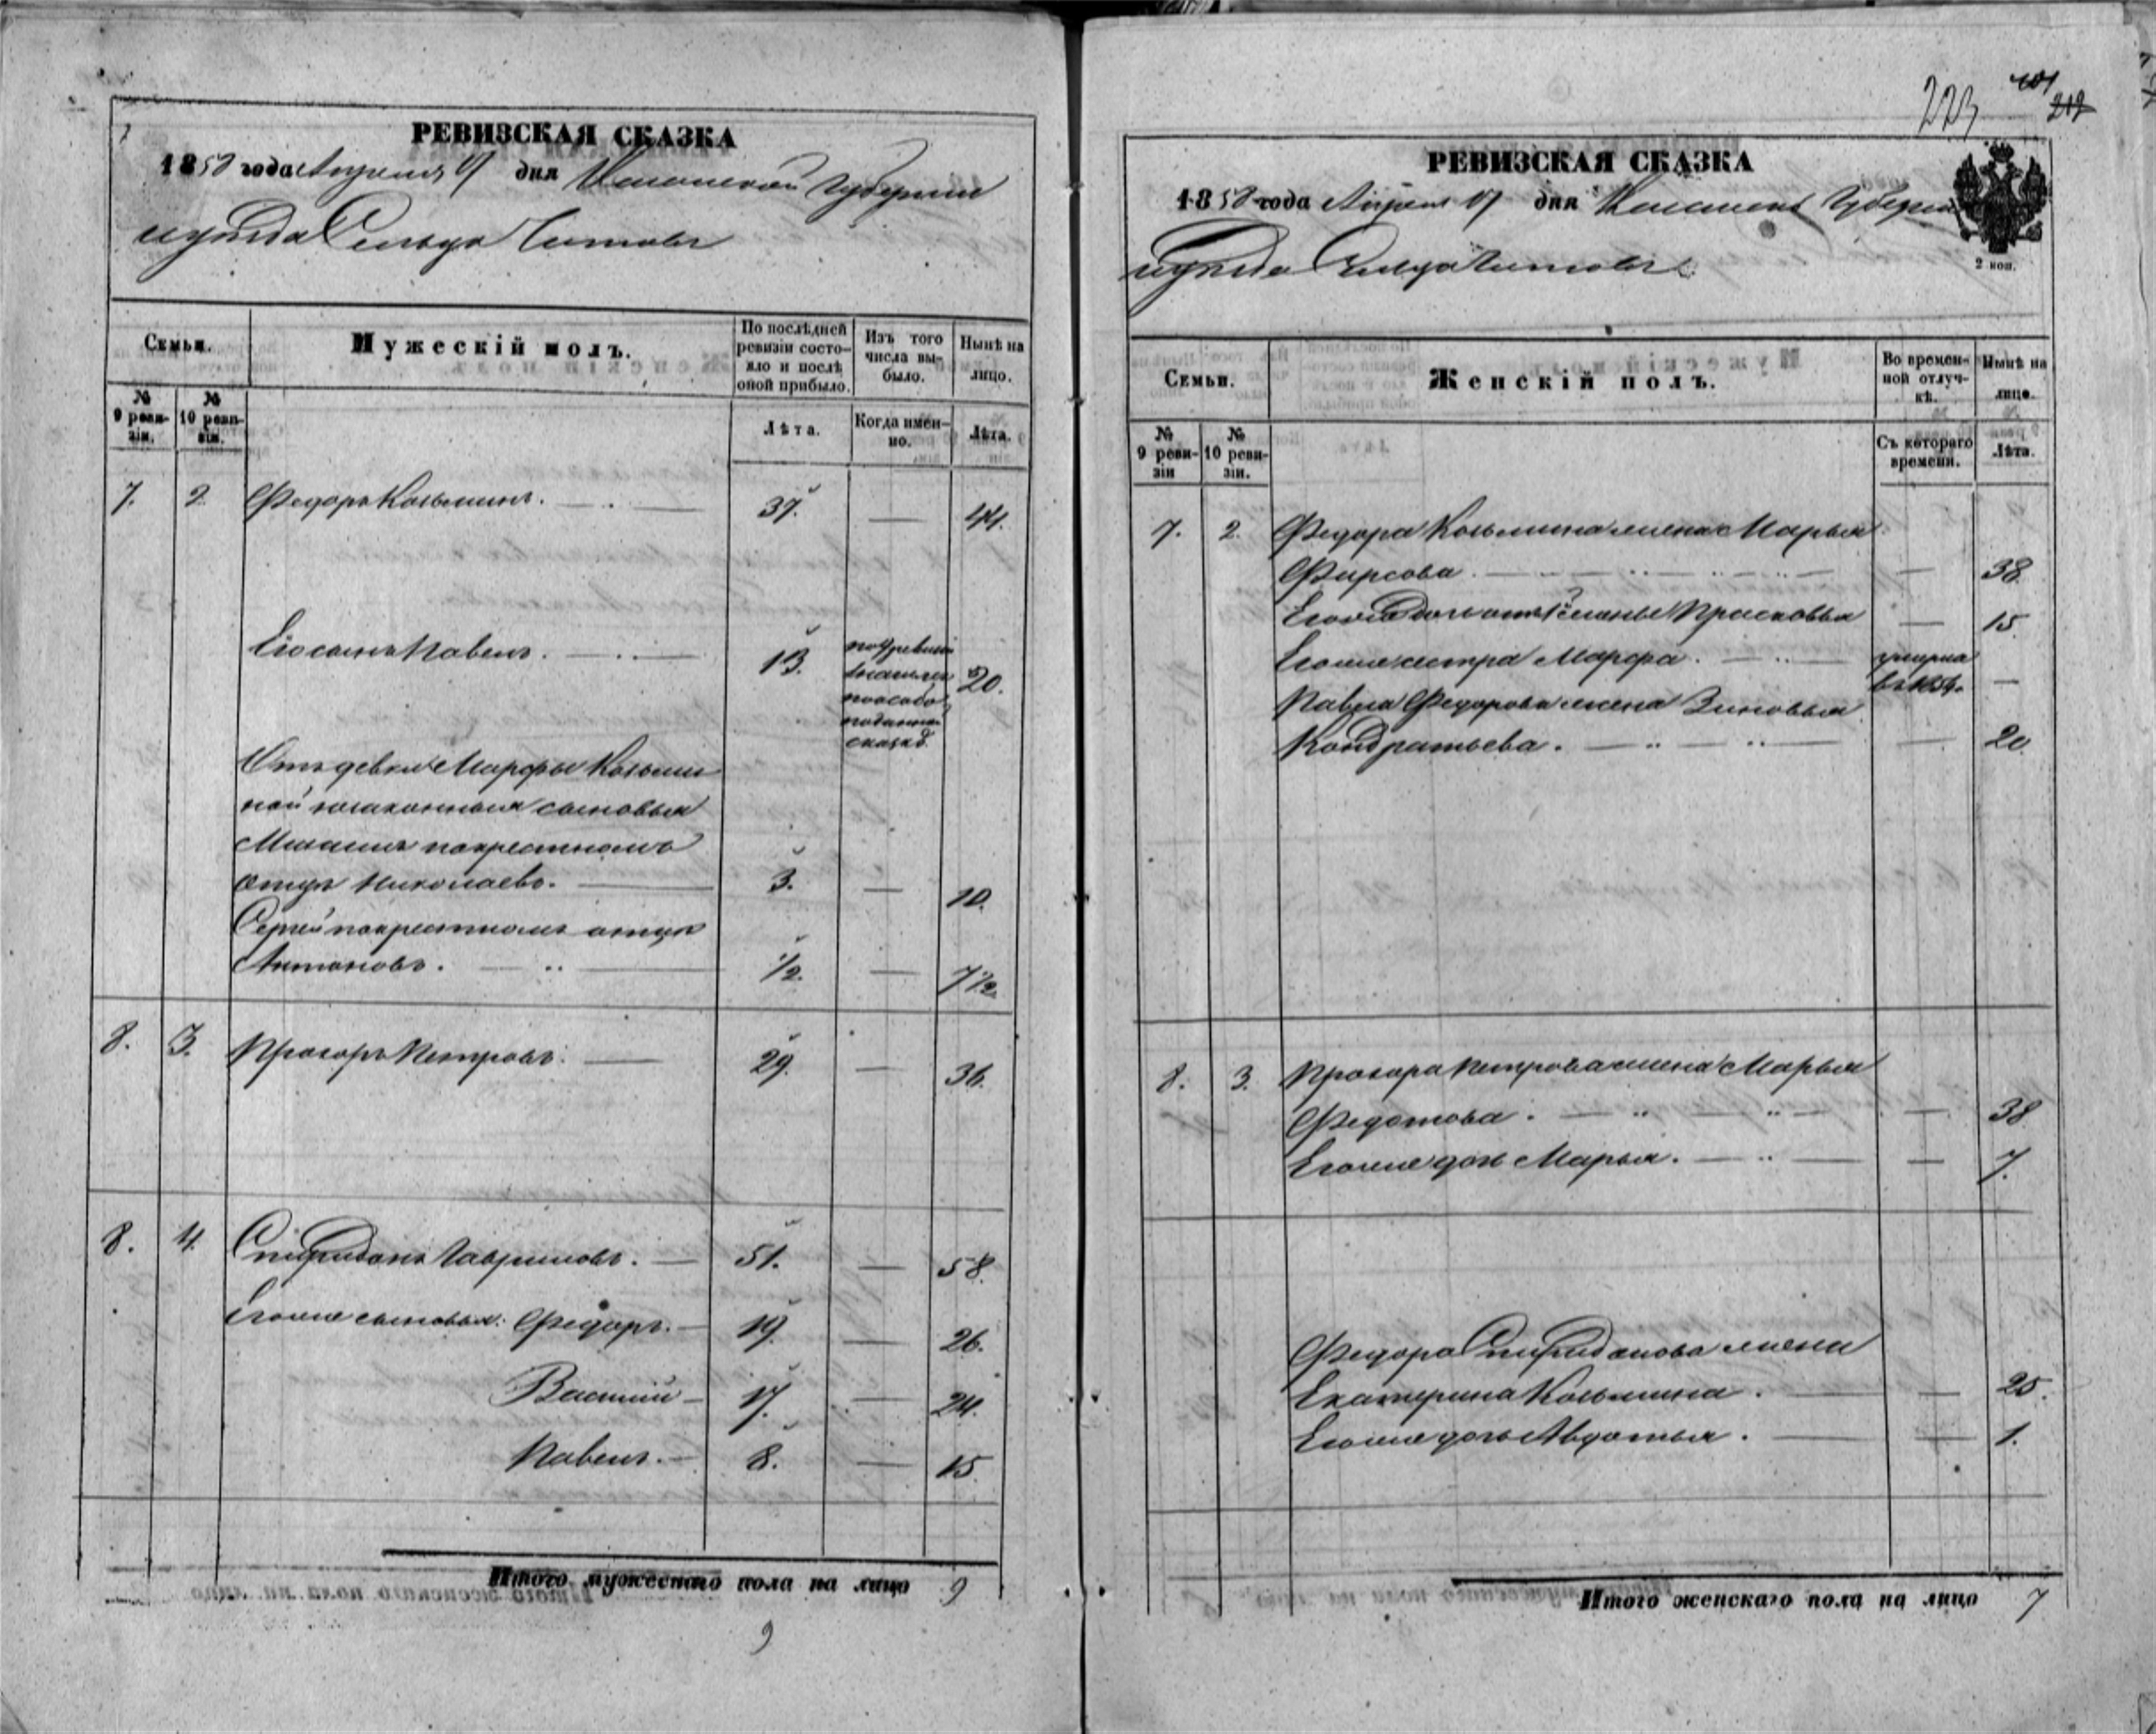 РЕВИЗСКАЯ СКАЗКА
1858 года Апреля дня Губернии
уезда Сельцо
Семьи.
Мужескій полъ.
По послѣдней ревизіи состояло и послѣ оной прибыло.
Изъ того числа выбыло.
Нынѣ на лицо.
№ 9 ревизіи.
№ 10 ревизіи.
Лѣта.
Когда именно.
Лѣта.
7. 2. Федоръ Козьминъ. 37. — 44.
Его сынъ Павелъ. 13. 20.
по 9 ревизіи
поданной
сказкѣ
Отъ девки Марфы Козьми
ной незаконныя сыновья
Михаилъ по крестному
отцу Николаевъ. 3. — 10.
Сергей по крестному отцу
Антоновъ. 1/2. — 7 1/2.
8. 3. Прохоръ Петровъ. 29. — 36.
8. 4. Спиридонъ Гавриловъ. 51. — 58.
Егоже сыновья: Федоръ. 19. — 26.
Василий 17. — 24.
Павелъ. 8. — 15.
Итого мужескаго пола на лицо 9
9
223
212
РЕВИЗСКАЯ СКАЗКА
1858 года Апреля дня Губернии
уезда Сельцо
2 коп.
Семьи.
Женскій полъ.
Во временной отлучкѣ.
Нынѣ на лицо.
№ 9 ревизіи
№ 10 ревизіи.
Съ котораго времени.
Лѣта.
7. 2. Федора Козьмина жена Марья
Фирсова — 38.
Егоже дочь отъ 1й жены Прасковья — 15.
Егоже сестра Марфа. умерла
въ 1854. —
Павла Федорова жена Зиновья
Кондратьева. — 20
8. 3. Прохора Петрова жена Марья
Федотова. — 38
Егоже дочь Марья. — 7.
Федора Спиридонова жена
Екатерина Козьмина. — 25.
Егоже дочь Авдотья. — 1.
Итого женскаго пола на лицо 7